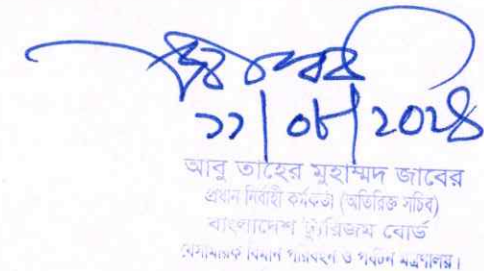 ১১/০৮/২০২৪
আবু তাহের মুহাম্মদ জাবের
প্রধান নির্বাহী কর্মকর্তা (অতিরিক্ত সচিব)
বাংলাদেশ ট্যুরিজম বোর্ড
বেসামরিক বিমান পরিবহন ও পর্যটন মন্ত্রণালয়।